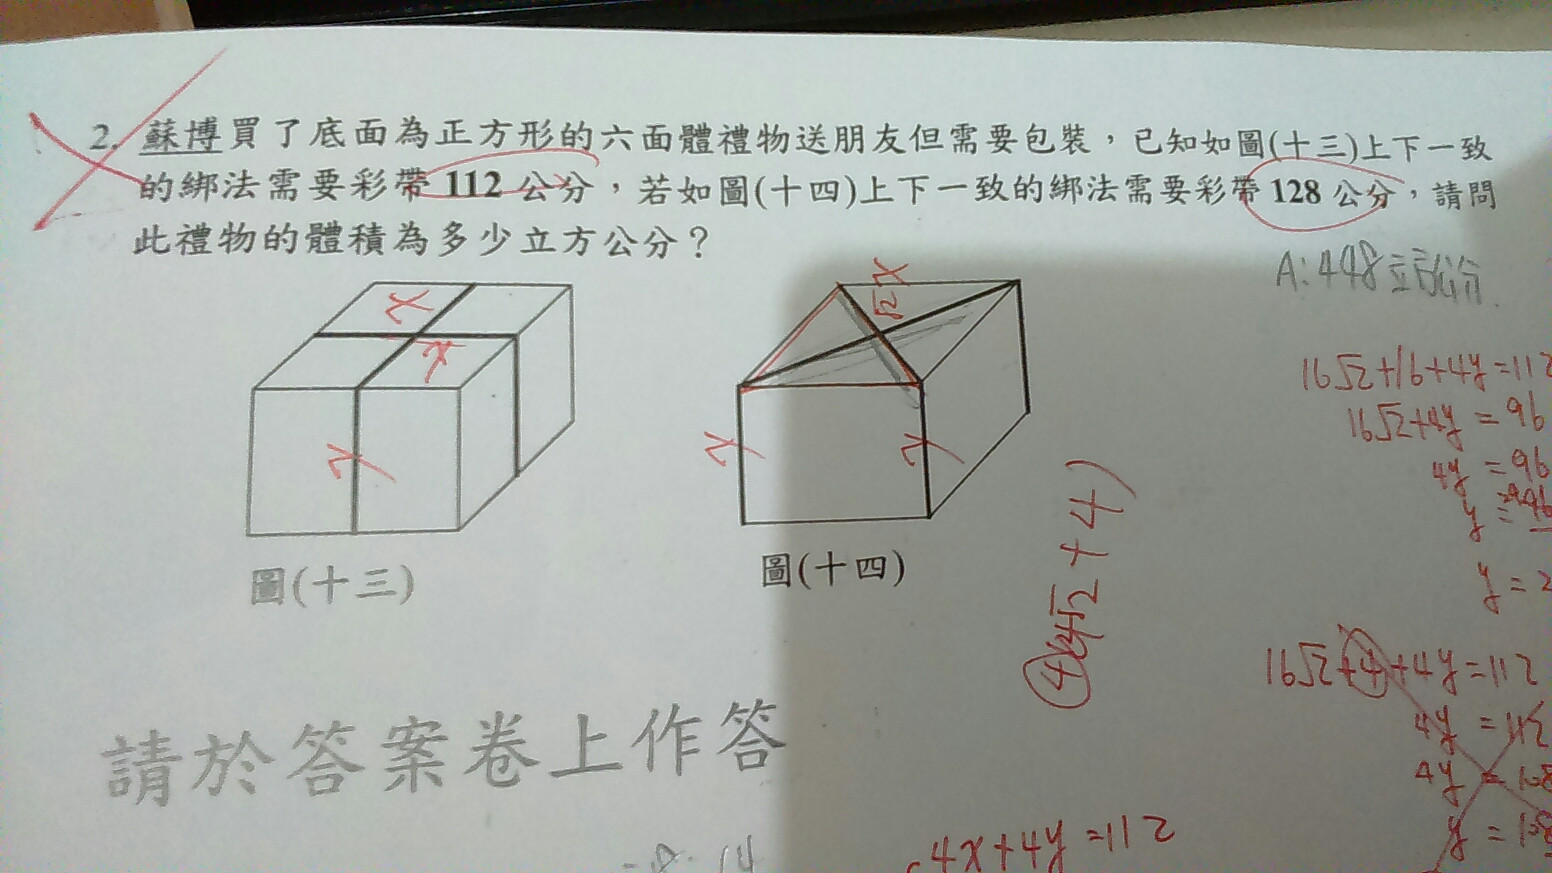 2. 蘇博買了底面為正方形的六面體禮物送朋友但需要包裝，已知如圖(十三)上下一致
的綁法需要彩帶 112 公分，若如圖(十四)上下一致的綁法需要彩帶 128 公分，請問
此禮物的體積為多少立方公分？
A:448立方公分
x
x
y
√2x
y
y
圖(十三)
圖(十四)
4(4√2+4)
16√2+16+4y=112
16√2+4y=96
4y=96
y=
y=2
16√2+4+4y=112
4y=112
4y=108
y=108
請於答案卷上作答
4x+4y=112